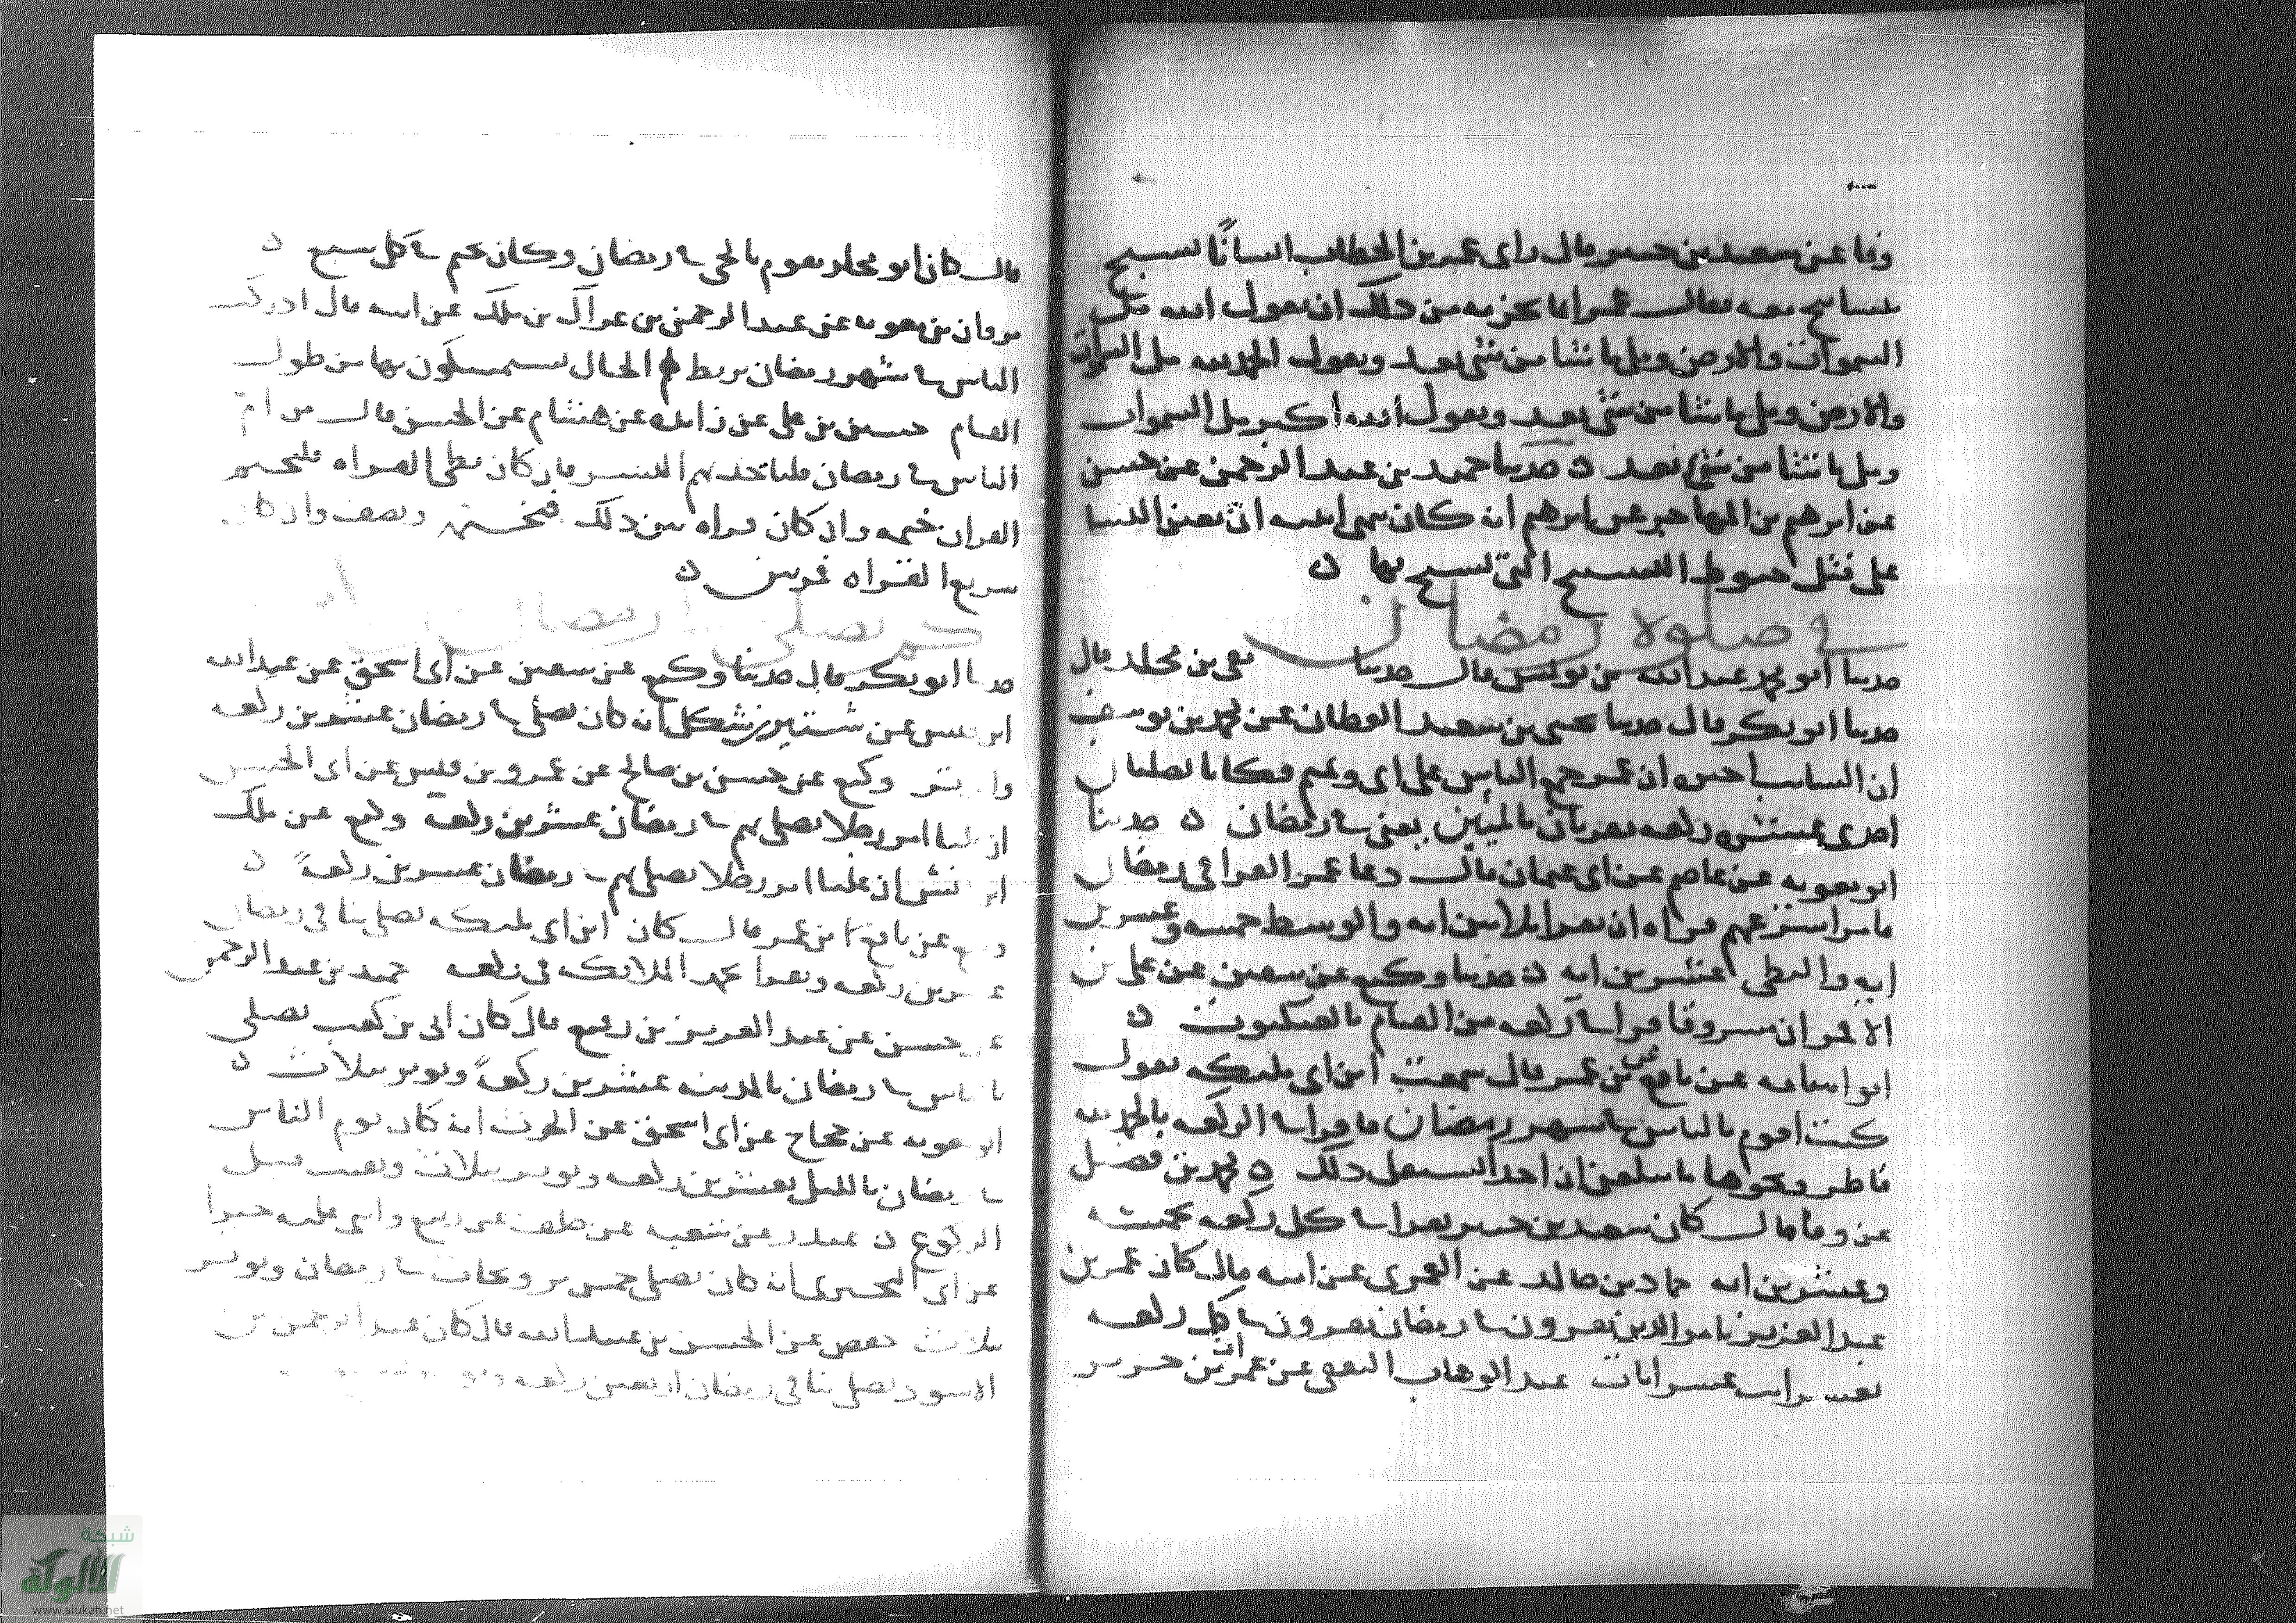 وقا عن سعيد بن جبير قال راى عمر بن الخطاب انسانًا يسبح
بتسابيح معه فقال عمر انما يجزيه من ذلك ان يقول سبحان الله مل
السموات والارض ومل ما شا من شي بعد ويقول الحمد لله مل السموات
والارض ومل ما شا من شي بعد ويقول الله اكبر مل السموات
ومل ما شا من شي بعد ن حدثنا حميد بن عبد الرحمن عن حسن
عن ابرهيم بن المهاجر عن ابرهيم انه كان ينهى ابنته ان تعين النسا
على فتل خيوط التسبيح التي يسبح بها ن
في صلوة رمضان
حدثنا ابو محمد عبد الله بن يونس قال حدثنا بقي بن مخلد قال
حدثنا ابو بكر قال حدثنا يحيى بن سعيد القطان عن محمد بن يوسف
ان السايب اخبره ان عمر جمع الناس على ابي وتميم فكانا يصليان
احدى عشره ركعه يقريان بالميين يعني في رمضان ن حدثنا
ابو معويه عن عاصم عن ابي عثمان قال دعا عمر القرا في رمضان
فامر اسرعهم قراه ان يقرا ثلاثين ايه والوسط خمسه وعشرين
ايه والبطي عشرين ايه ن حدثنا وكيع عن سفين عن علي بن
الاقمر ان مسروقا قرا في ركعه من القيام بالعنكبوت ن
ابو اسامه عن نافع بن عمر قال سمعت ابن ابي مليكه يقول
كنت اقوم بالناس في شهر رمضان فاقرا في الركعه بالحمد لله
فاطر ونحوها ما يبلغني ان احدا يستثقل ذلك ن محمد بن فضيل
عن وقا قال كان سعيد بن جبير يقرا في كل ركعه بخمسه
وعشرين ايه حماد بن خالد عن العمري عن ابيه قال كان عمر بن
عبد العزيز يامر الذين يقرون في رمضان يقرون في كل ركعه
بعشر ايات عشر ايات عبد الوهاب الثقفي عن عمران بن حدير
قال كان ابو مجلز يقوم بالحي في رمضان وكان يختم في كل سبع ن
مروان بن معويه عن عبد الرحمن بن عراك بن ملك عن ابيه قال ادركت
الناس في شهر رمضان يربط لهم الحبال يستمسكون بها من طول
القيام حسين بن علي عن زايده عن هشام عن الحسن قال من ام
الناس في رمضان فلياخذ بهم اليسر فان كان بطي القراه فليختم
القران ختمه وان كان قراه بين ذلك فختمه ونصف وان كان
سريع القراه فمرتين ن
كم يصلي في رمضان من ركعة
حدثنا ابو بكر قال حدثنا وكيع عن سفين عن ابي اسحق عن عبد الله
ابن قيس عن شتير بن شكل انه كان يصلي في رمضان عشرين ركعه
والوتر وكيع عن حسن بن صالح عن عمرو بن قيس عن ابي الحسن
ان عليا امر رجلا يصلي بهم في رمضان عشرين ركعه وكيع عن ملك
ان عليا امر رجلا يصلي بهم في رمضان عشرين ركعةً ن
وكيع عن نافع بن عمر قال كان ابن ابي مليكه يصلي بنا في رمضان
عشرين ركعه ويقرا بحمد الملائكه في ركعه حميد بن عبد الرحمن
عن حسن عن عبد العزيز بن رفيع قال كان ابي بن كعب يصلي
بالناس في رمضان بالمدينه عشرين ركعةً ويوتر بثلاث ن
ابو معويه عن حجاج عن ابي اسحق عن الحرث انه كان يوم الناس
في رمضان بالليل بعشرين ركعه ويوتر بثلاث ويقنت قبل
الركوع ن غندر عن شعبه عن خلف عن ربيع واثنى عليه خيرا
عن ابي البختري انه كان يصلي خمس ترويحات في رمضان ويوتر
بثلاث حفص عن الحسن بن عبيد الله قال كان عبد الرحمن بن
الاسود يصلي بنا في رمضان اربعين ركعه
شبكة
الألوكة
www.alukah.net